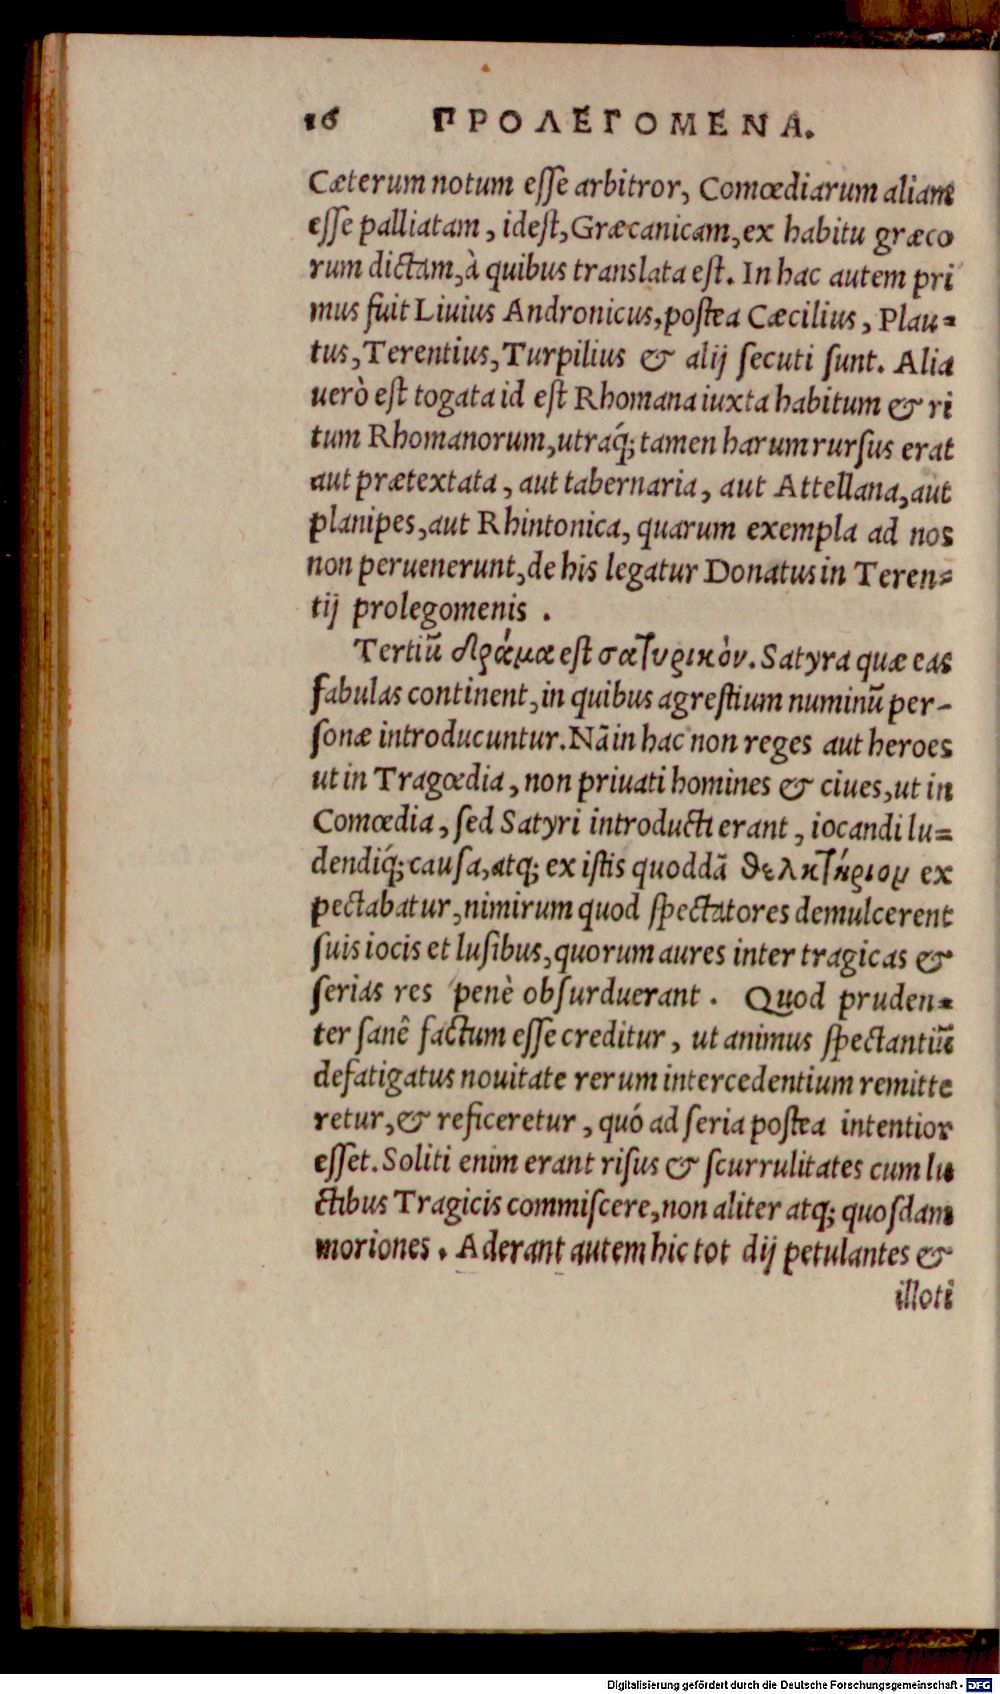 16 ΠΡΟΛΕΓΟΜΕΝΑ.
Cæterum notum eſſe arbitror, Comœdiarum aliam
eſſe palliatam, ideſt, Græcanicam, ex habitu græco
rum dictam, à quibus translata eſt. In hac autem pri
mus fuit Liuius Andronicus, poſtea Cæcilius, Plau=
tus, Terentius, Turpilius & alij ſecuti ſunt. Alia
uerò eſt togata id eſt Rhomana iuxta habitum & ri
tum Rhomanorum, utraq́; tamen harum rurſus erat
aut prætextata, aut tabernaria, aut Attellana, aut
planipes, aut Rhintonica, quarum exempla ad nos
non peruenerunt, de his legatur Donatus in Teren=
tij prolegomenis.
Tertiũ δράμα eſt σατυρικὸν. Satyra quæ eas
fabulas continent, in quibus agreſtium numinũ per-
ſonæ introducuntur. Nã in hac non reges aut heroes
ut in Tragœdia, non priuati homines & ciues, ut in
Comœdia, ſed Satyri introducti erant, iocandi lu=
dendiq́; cauſa, atq; ex iſtis quoddã θελκτήριον ex
pectabatur, nimirum quod ſpectatores demulcerent
ſuis iocis et luſibus, quorum aures inter tragicas &
ſerias res penè obſurduerant. Quod pruden=
ter ſanê factum eſſe creditur, ut animus ſpectantiũ
defatigatus nouitate rerum intercedentium remitte
retur, & reficeretur, quó ad ſeria poſtea intentior
eſſet. Soliti enim erant riſus & ſcurrulitates cum lu
ctibus Tragicis commiſcere, non aliter atq; quoſdam
moriones. Aderant autem hic tot dij petulantes &
illoti
Digitalisierung gefördert durch die Deutsche Forschungsgemeinschaft - DFG